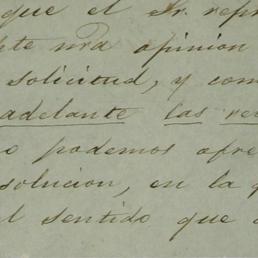 que el Sr. repr
nra opinion
solicitud, y com
adelante las re
o podemos ofre
solucion, en la q
el sentido que